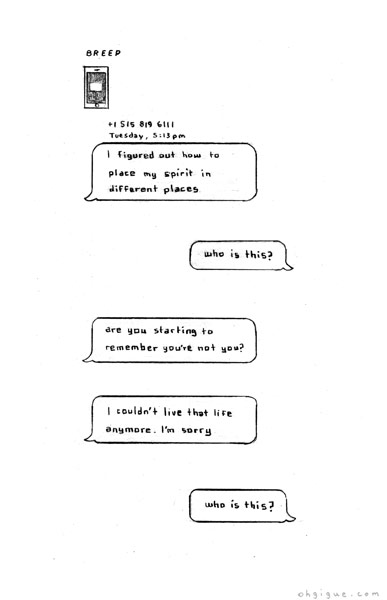 BREEP
+1 515 819 6111
Tuesday, 5:13pm
I figured out how to
place my spirit in
different places.
who is this?
are you starting to
remember you're not you?
I couldn't live that life
anymore. I'm sorry
who is this?
ohgigue.com